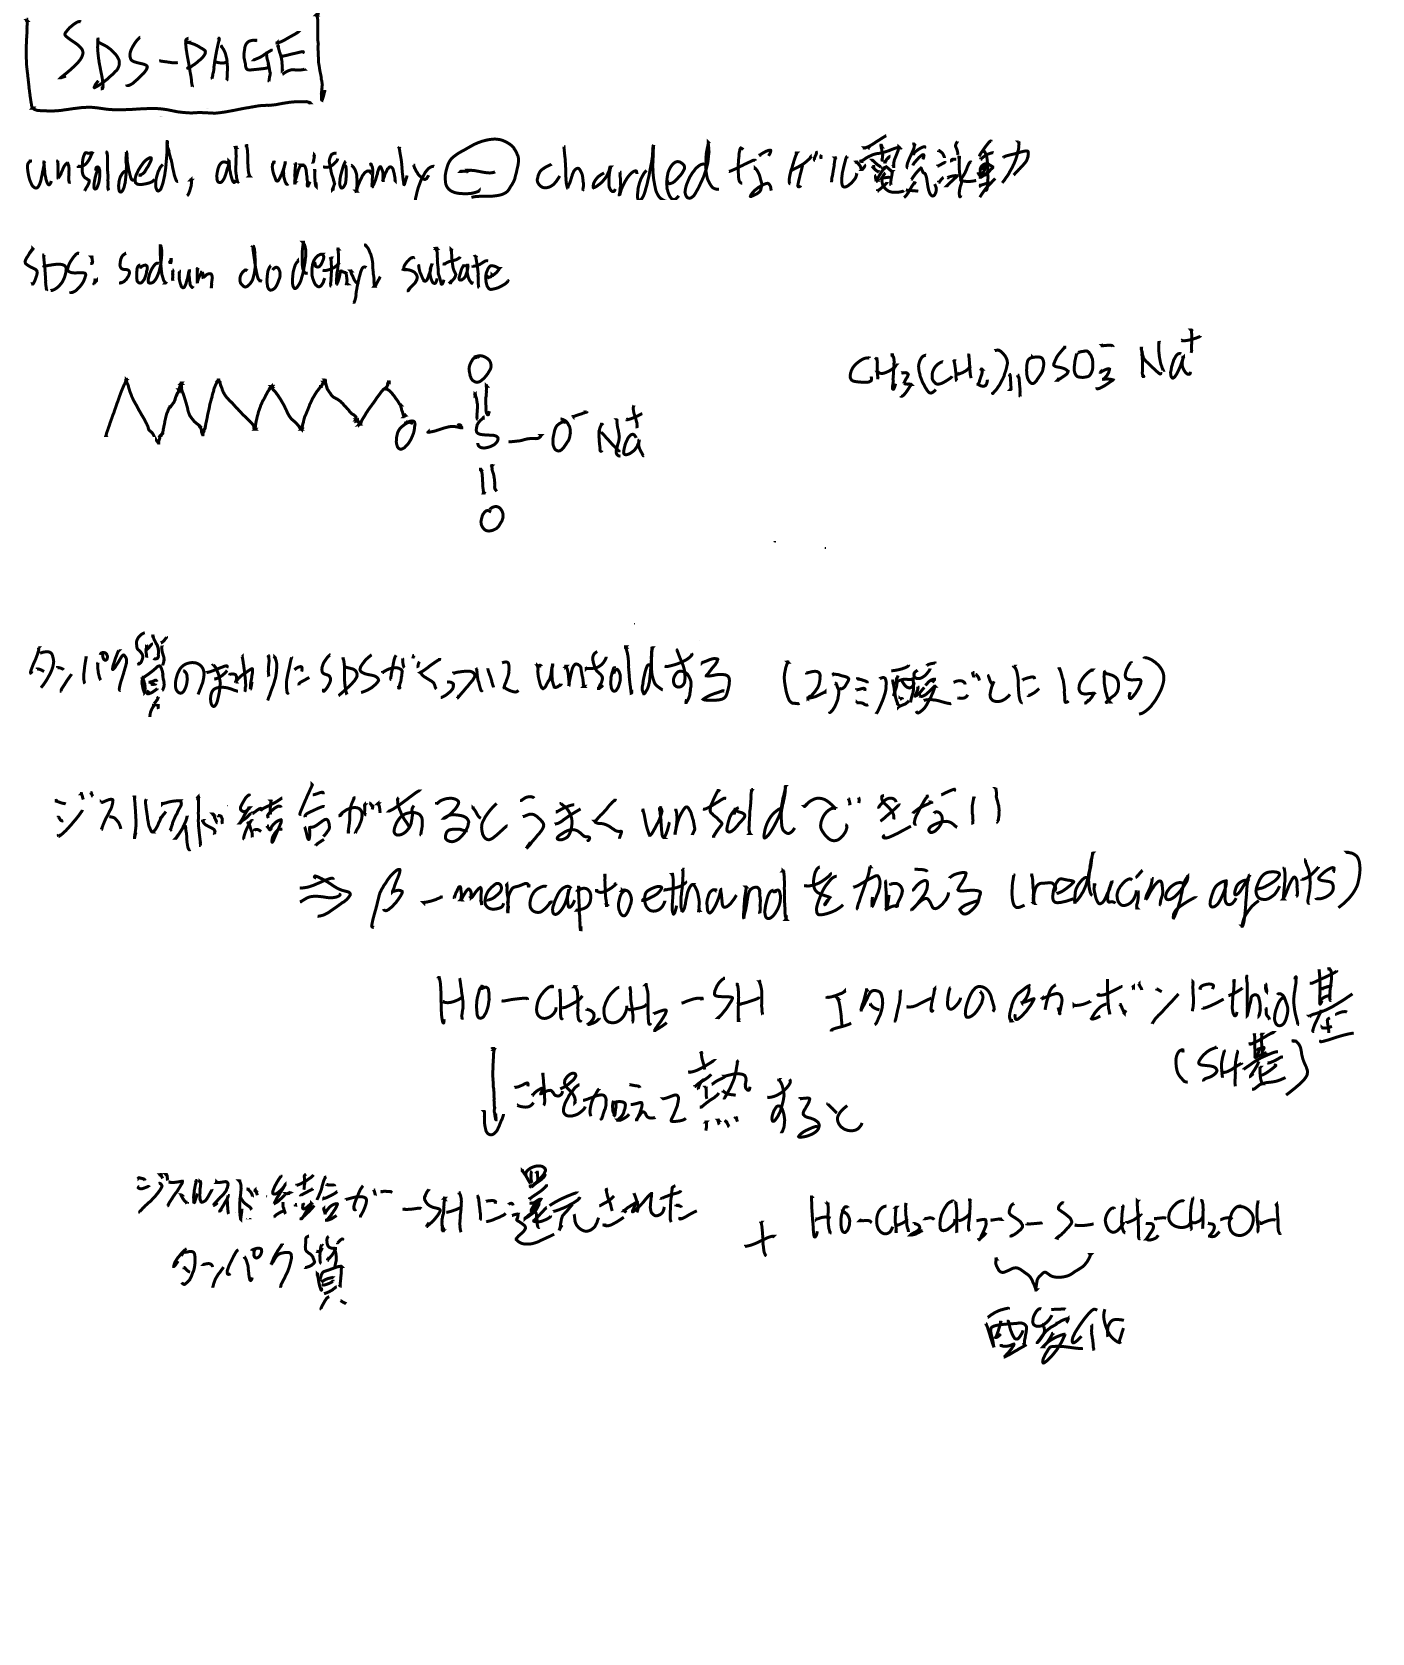 SDS-PAGE
unfolded, all uniformly ⊖ charded なゲル電気泳動
SDS: sodium dodethyl sulfate
CH3(CH2)11OSO3- Na+
O
||
O-S-O- Na+
||
O
タンパク質のまわりにSDSがくっついて unfoldする (2アミノ酸ごとに1SDS)
ジスルフィド結合があるとうまくunfoldできない
⇒ β-mercaptoethanolを加える (reducing agents)
HO-CH2CH2-SH エタノールのβカーボンにthiol基
(SH基)
↓これを加えて熱すると
ジスルフィド結合が-SHに還元された
タンパク質
+ HO-CH2-CH2-S-S-CH2-CH2-OH
酸化